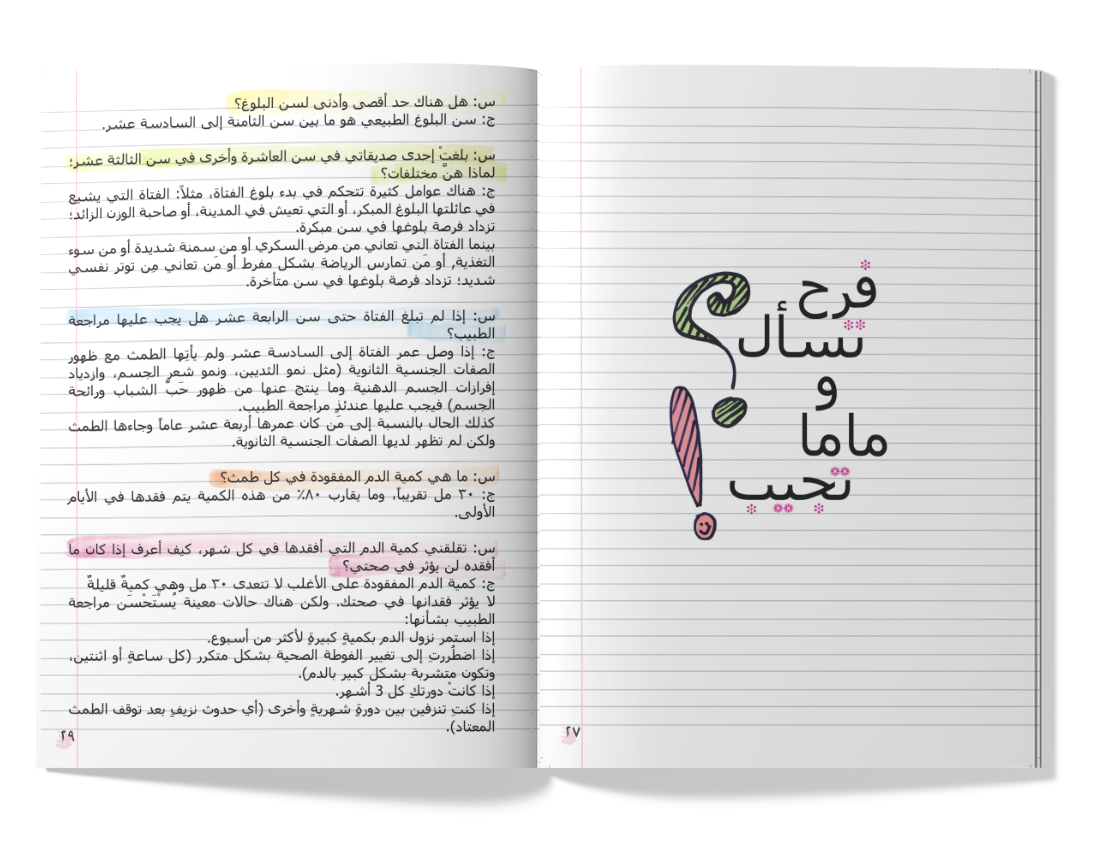 فرح
تسأل
و
ماما
تجيب
٢٧
س: هل هناك حد أقصى وأدنى لسن البلوغ؟
ج: سن البلوغ الطبيعي هو ما بين سن الثامنة إلى السادسة عشر.
س: بلغتْ إحدى صديقاتي في سن العاشرة وأخرى في سن الثالثة عشر؛
لماذا هنّ مختلفات؟
ج: هناك عوامل كثيرة تتحكم في بدء بلوغ الفتاة، مثلاً: الفتاة التي يشيع
في عائلتها البلوغ المبكر، أو التي تعيش في المدينة، أو صاحبة الوزن الزائد؛
تزداد فرصة بلوغها في سن مبكرة.
بينما الفتاة التي تعاني من مرض السكري أو من سمنة شديدة أو من سوء
التغذية, أو مَن تمارس الرياضة بشكل مفرط أو مَن تعاني مِن توتر نفسي
شديد؛ تزداد فرصة بلوغها في سن متأخرة.
س: إذا لم تبلغ الفتاة حتى سن الرابعة عشر هل يجب عليها مراجعة
الطبيب؟
ج: إذا وصل عمر الفتاة إلى السادسة عشر ولم يأتِها الطمث مع ظهور
الصفات الجنسية الثانوية (مثل نمو الثديين، ونمو شعر الجسم، وازدياد
إفرازات الجسم الدهنية وما ينتج عنها من ظهور حَبّ الشباب ورائحة
الجسم) فيجب عليها عندئذٍ مراجعة الطبيب.
كذلك الحال بالنسبة إلى مَن كان عمرها أربعة عشر عاماً وجاءها الطمث
ولكن لم تظهر لديها الصفات الجنسية الثانوية.
س: ما هي كمية الدم المفقودة في كل طمث؟
ج: ٣٠ مل تقريباً، وما يقارب ٨٠٪ من هذه الكمية يتم فقدها في الأيام
الأولى.
س: تقلقني كمية الدم التي أفقدها في كل شهر، كيف أعرف إذا كان ما
أفقده لن يؤثر في صحتي؟
ج: كمية الدم المفقودة على الأغلب لا تتعدى ٣٠ مل وهي كميةٌ قليلةٌ
لا يؤثر فقدانها في صحتك. ولكن هناك حالات معينة يُسْتَحْسَن مراجعة
الطبيب بشأنها:
إذا استمر نزول الدم بكميةٍ كبيرةٍ لأكثر من أسبوع.
إذا اضطُررتِ إلى تغيير الفوطة الصحية بشكل متكرر (كل ساعةٍ أو اثنتين،
وتكون متشربة بشكل كبير بالدم).
إذا كانتْ دورتكِ كل 3 أشهر.
إذا كنتِ تنزفين بين دورةٍ شهريةٍ وأخرى (أي حدوث نزيفٍ بعد توقف الطمث
المعتاد).
٢٩